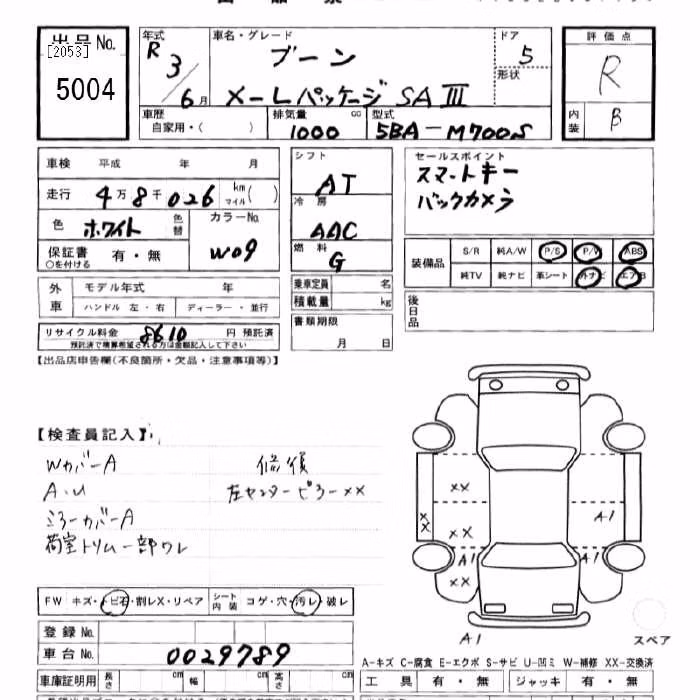 出品No.
[2053]
5004
年式 R 3 / 6月
車名・グレード ブーン
X-Lパッケージ SA III
ドア 5
形状
評価点 R
内装 B
車歴 自家用・( )
排気量 1000 cc
型式 5BA-M700S
車検 平成 年 月
走行 4万8千026 km マイル( )
色 ホワイト 色替
カラーNo. W09
保証書 有・無
○を付ける
シフト AT
冷房 AAC
燃料 G
乗車定員 名
積載量 kg
書類期限
月 日
セールスポイント
スマートキー
バックカメラ
装備品 S/R 純A/W P/S P/W ABS
純TV 純ナビ 革シート 外ナビ エアB
後日品
外車 モデル年式 年
ハンドル 左・右 ディーラー・並行
リサイクル料金 8610 円 預託済
預託済で積算希望される方は金額記入して下さい
【出品店申告欄(不良箇所・欠品・注意事項等)】
【検査員記入】
WカバーA
A・U
ミラーカバーA
荷室トリム一部ワレ
修復
左センターピラーXX
XX
XX
XX
A1
XX
A1
A1
XX
A1
スペア
FW キズ・トビ石・割レX・リペア シート内装 コゲ・穴・汚レ・破レ
登録No.
車台No. 0029789
車庫証明用 長さ cm 幅 cm 高さ cm
A-キズ C-腐食 E-エクボ S-サビ U-凹ミ W-補修 XX-交換済
工具 有・無 ジャッキ 有・無